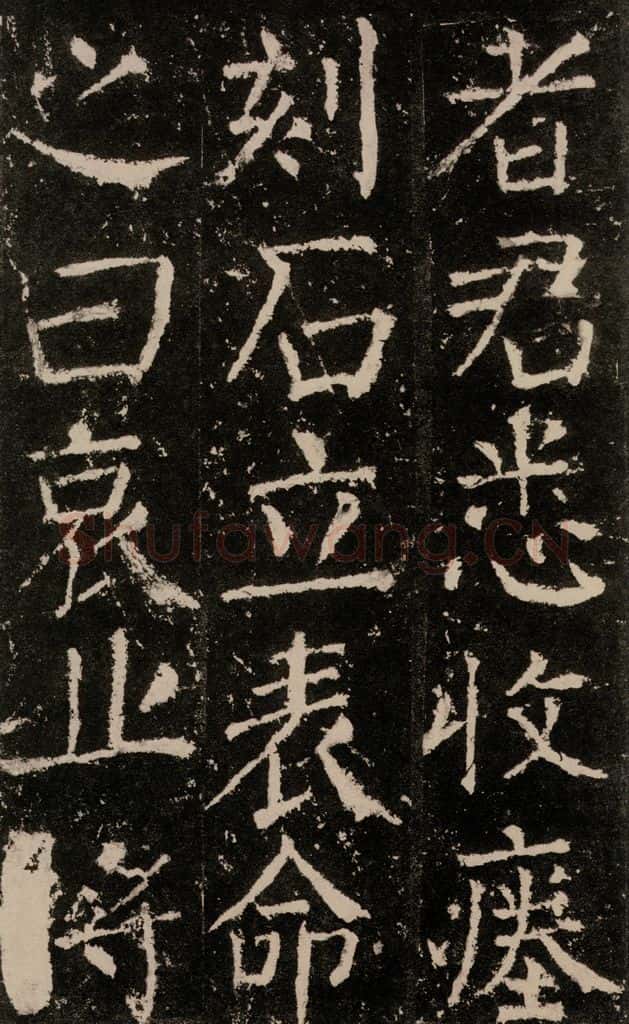 者君悉收瘞
刻石立表命
之曰哀止將
Shufawang.CN